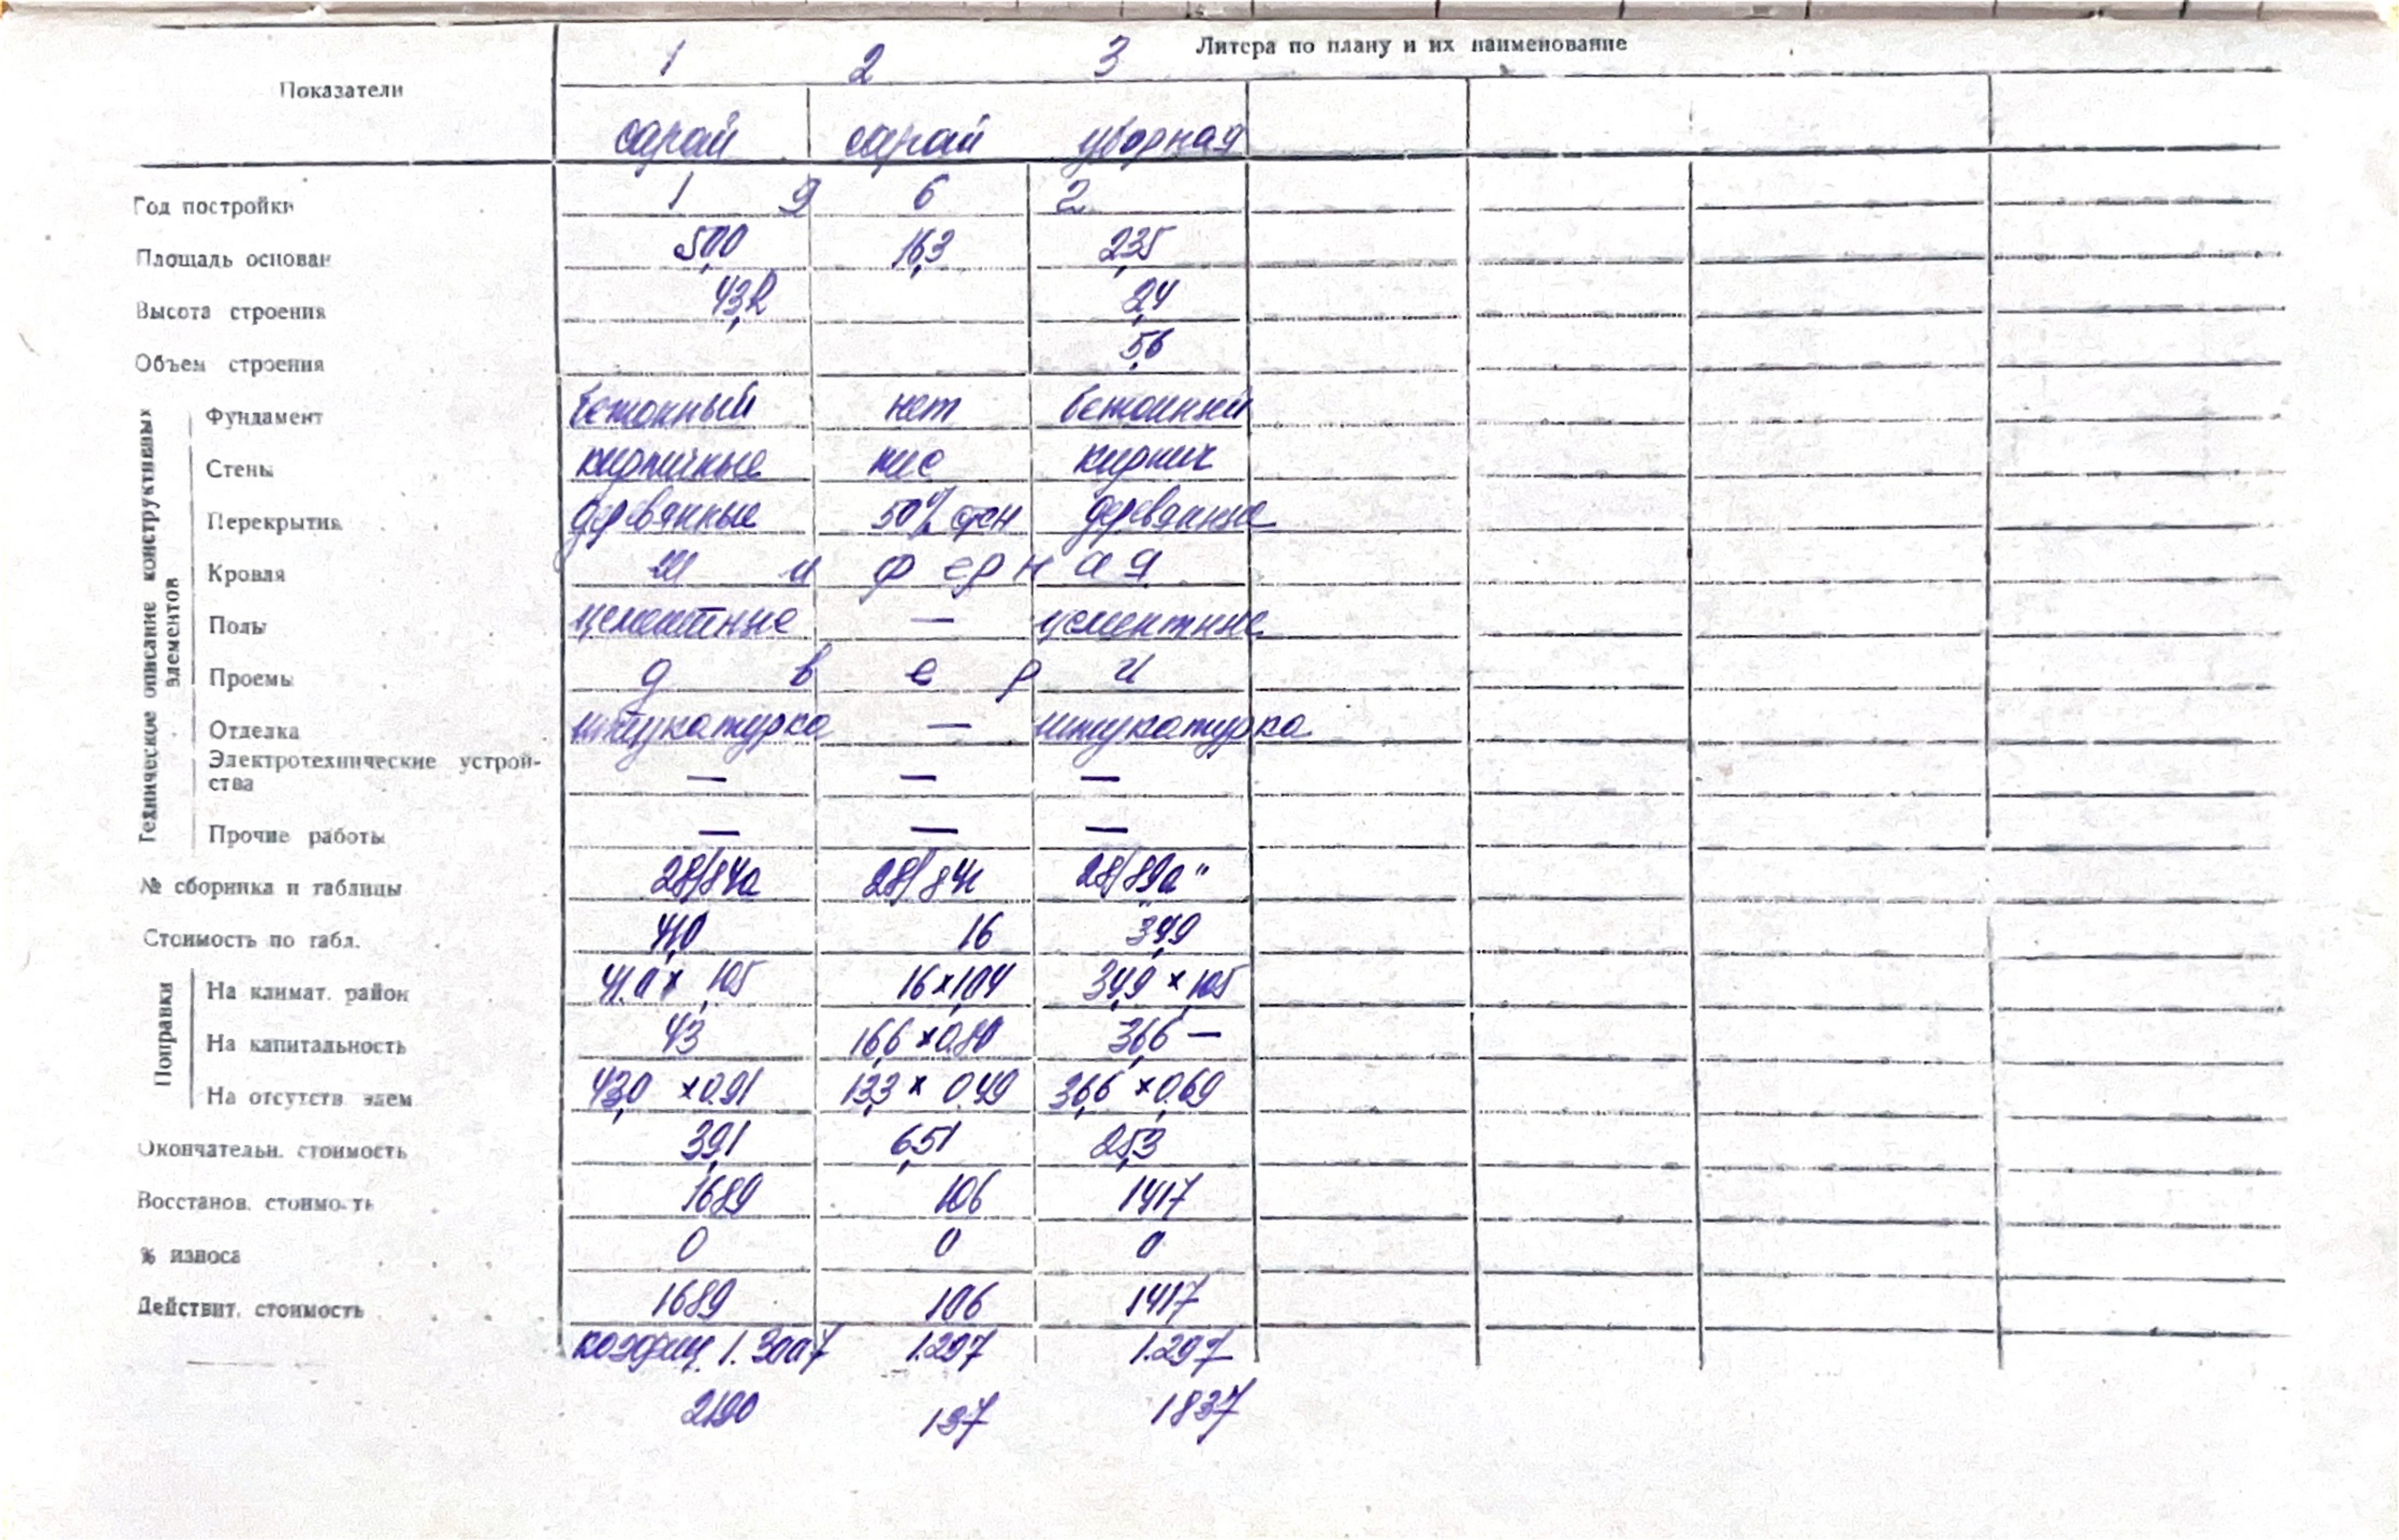 Литера по плану и их наименование
Показатели 1 2 3
сарай сарай уборная
Год постройки 1 9 6 2
Площадь основан 50,0 16,3 23,5
Высота строения 43,2 2,4
Объем строения 56
Техническое описание конструктивных элементов
Фундамент бетонный нет бетонный
Стены кирпичные кирпич
Перекрытия деревянные 50% стен деревянные
Кровля ш и ф е р н а я
Полы цементные — цементные
Проемы д в е р и
Отделка штукатурка — штукатурка
Электротехнические устрой-
ства — — —
Прочие работы — — —
№ сборника и таблицы 28/84а 28/84г 28/89а"
Стоимость по табл. 41,0 16 34,9
Поправки
На климат. район 41,0 x 1,05 16 x 1,04 34,9 x 1,05
На капитальность 43 16,6 x 0.80 36,6 —
На отсутств элем 43,0 x 0.91 13,3 x 0.49 36,6 x 0,69
Окончательн. стоимость 39,1 6,51 25,3
Восстанов. стоимость 1689 106 1417
% износа 0 0 0
Действит. стоимость 1689 106 1417
коэфиц. 1.297 1.297
2190 137 1837